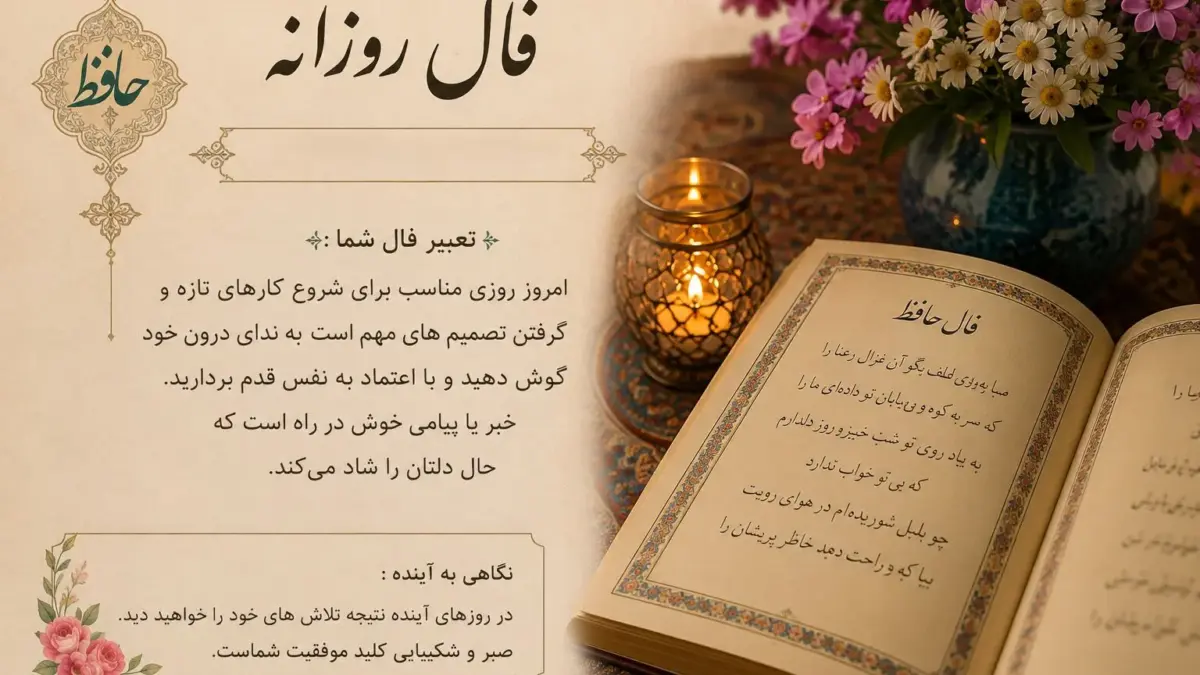 فال روزانه
حافظ
تعبیر فال شما :
امروز روزی مناسب برای شروع کارهای تازه و
گرفتن تصمیم های مهم است به ندای درون خود
گوش دهید و با اعتماد به نفس قدم بردارید.
خبر یا پیامی خوش در راه است که
حال دلتان را شاد می‌کند.
نگاهی به آینده :
در روزهای آینده نتیجه تلاش های خود را خواهید دید.
صبر و شکیبایی کلید موفقیت شماست.
فال حافظ
صبا به بگو آن غزال رعنا را
که سر به کوه و تو داده‌ای ما را
به یاد روی تو شب خیز و روز دلدارم
که بی تو خواب ندارد
چو بلبل شوریده‌ام در هوای رویت
راحت دهد خاطر پریشان را